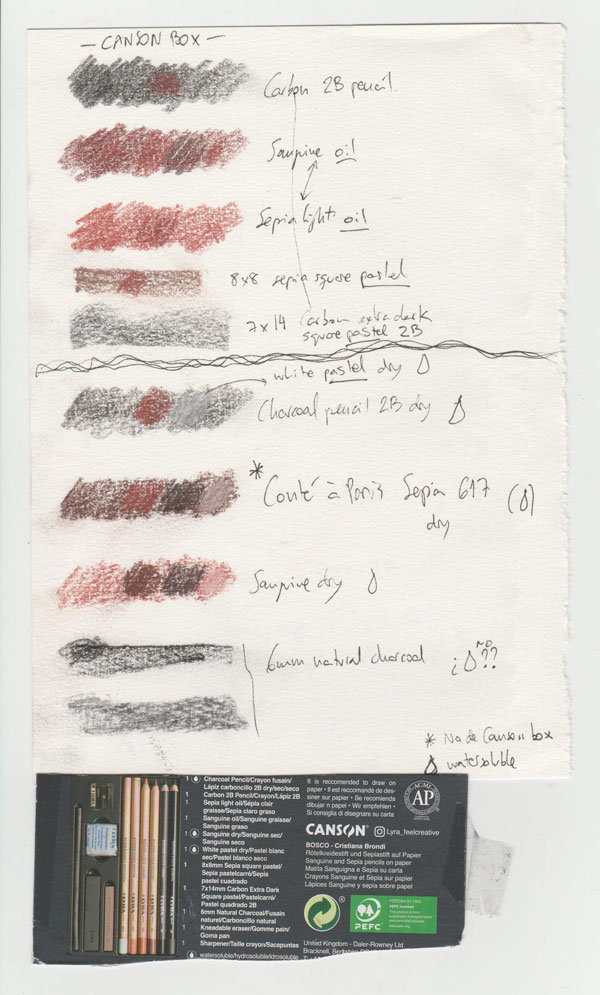 — CANSON BOX —
Carbon 2B pencil
Sanguine oil
Sepia light oil
8x8 sepia square pastel
7x14 Carbon extra dark
square pastel 2B
white pastel dry
Charcoal pencil 2B dry
* Conté à Paris Sepia 617 ( )
dry
Sanguine dry
6mm natural charcoal ¿ ??
NO
* No de Canson box
watersoluble
1 Charcoal Pencil/Crayon fusain/
Lápiz carboncillo 2B dry/sec/seco
1 Carbon 2B Pencil/Crayon/Lápiz 2B
1 Sepia light oil/Sépia clair
graisse/Sépia claro graso
1 Sanguine oil/Sanguine graisse/
Sanguine graso
1 Sanguine dry/Sanguine sec/
Sanguine seco
1 White pastel dry/Pastel blanc
sec/Pastel blanco seco
1 8x8mm Sepia square pastel/
Sepia pastelcarré/Sepia
pastel cuadrado
1 7x14mm Carbon Extra Dark
Square pastel/Pastelcarré/
Pastel quadrado 2B
1 6mm Natural Charcoal/Fusain
naturel/Carboncillo naturel
1 Kneadable eraser/Gomme pain/
Goma pan
1 Sharpener/Taille crayon/Sacapuntas
watersoluble/hydrosoluble/idrosoluble
It is reccomended to draw
on paper • Il est reccomandé de des-
siner sur papier • Se recomienda
dibujar n papel • Wir empfehlen •
Si consiglia di disegnare su carta
ACMI
AP
CANSON Lyra_feelcreative
BOSCO - Cristiana Brondi
Rötelkreidestift und Sepiastift auf Papier
Sanguine and Sepia pencils on paper
Matita Sanguigna e Sepia su carta
Crayons Sanguine et Sépia sur papier
Lápices Sanguine y sepia sobre papel
PEFC
United Kingdom - Daler-Rowney Ltd
Bracknell,